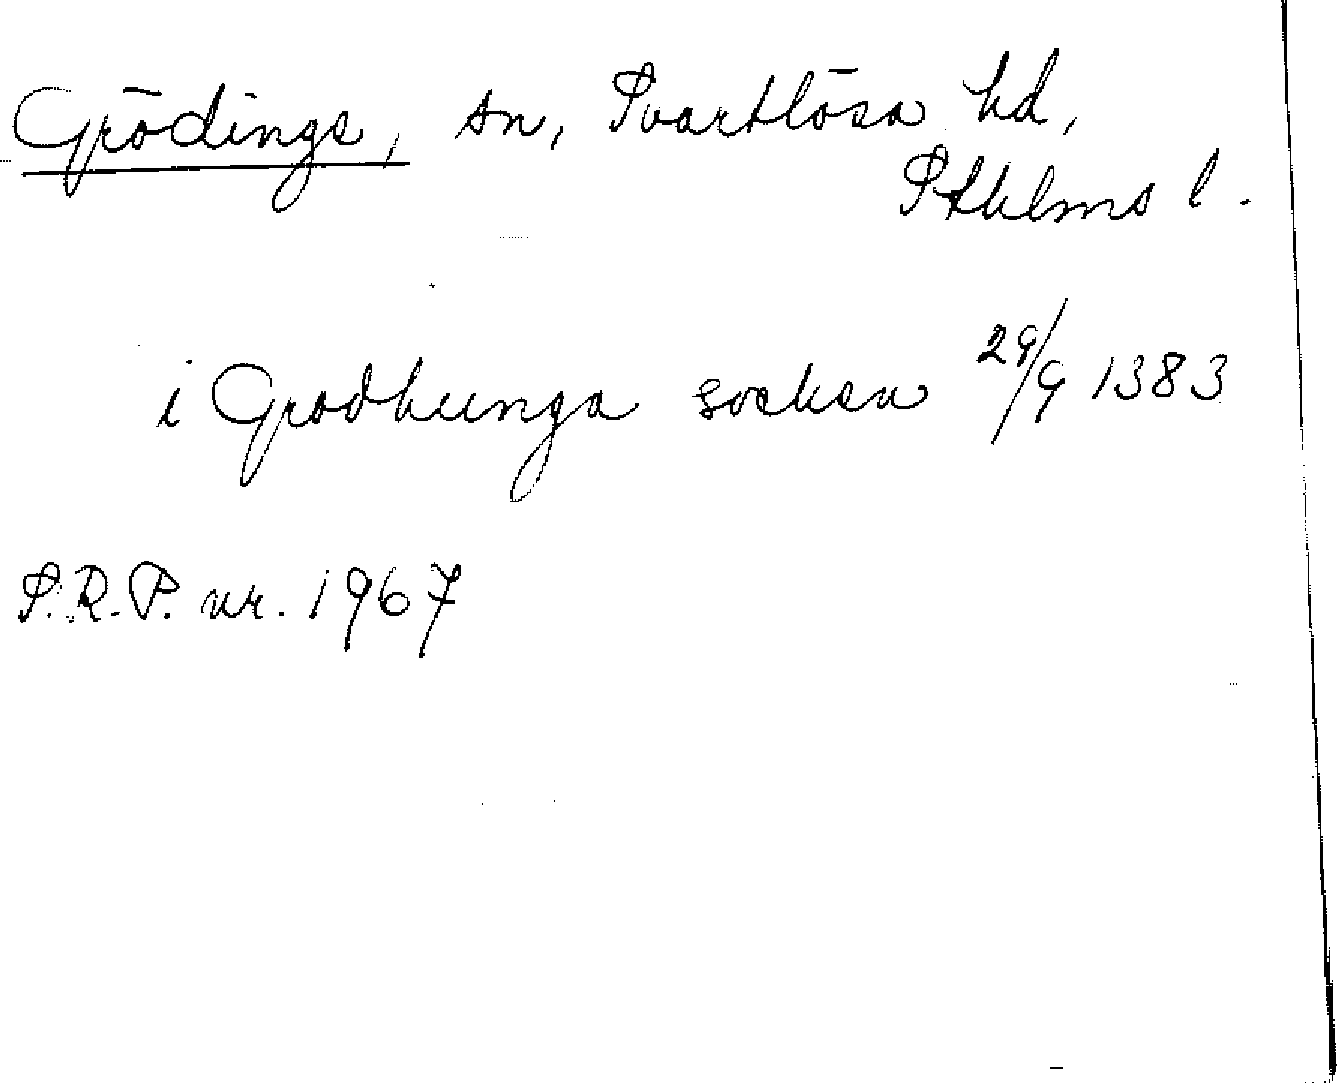 Grödinge, sn, Svartlösa hd,
Sthlms l.
i Grodhunga socken 29/9 1383
S.R.P. nr. 1967